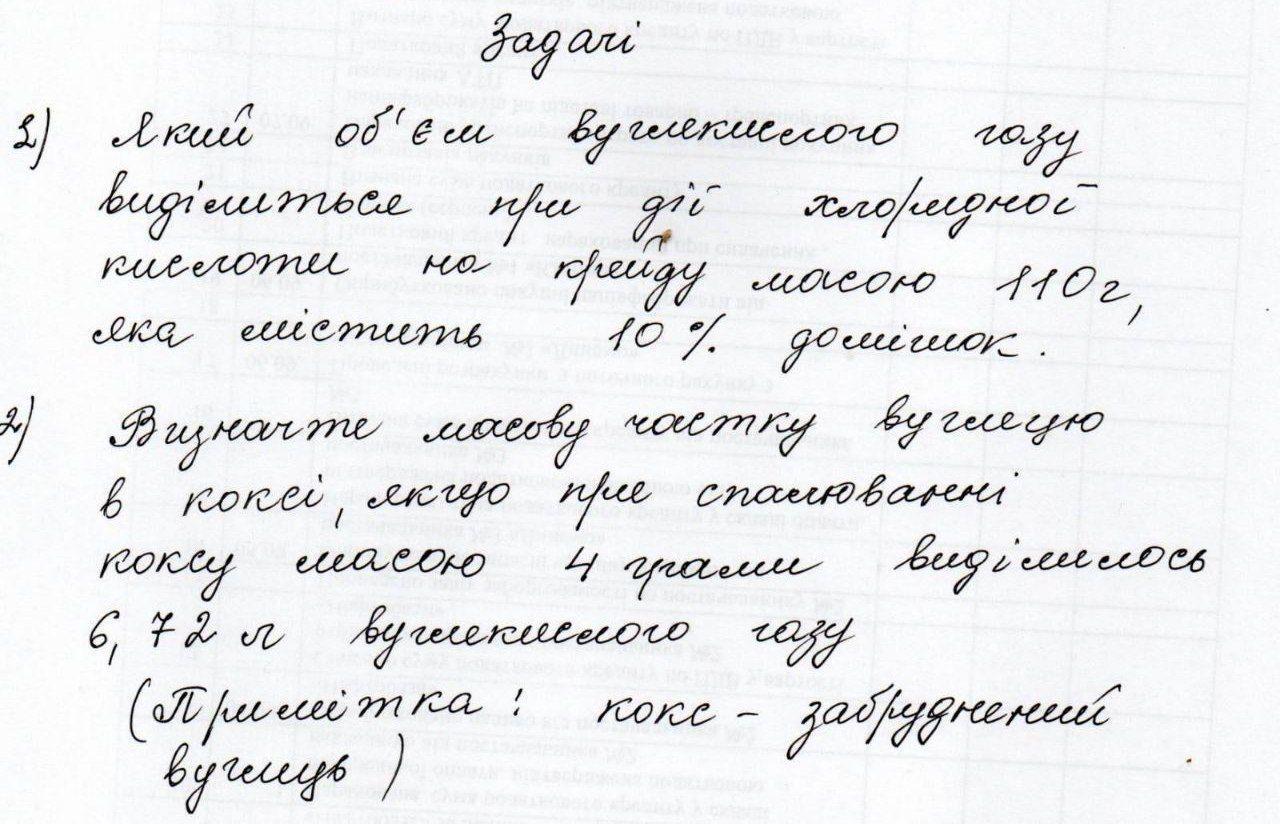 Задачі
1) Який об'єм вуглекислого газу
виділиться при дії хлоридної
кислоти на крейду масою 110г,
яка містить 10% домішок.
2) Визначте масову частку вуглецю
в коксі, якщо при спалюванні
коксу масою 4 грами виділилось
6,72 л вуглекислого газу
(Примітка: кокс – забруднений
вуглець)